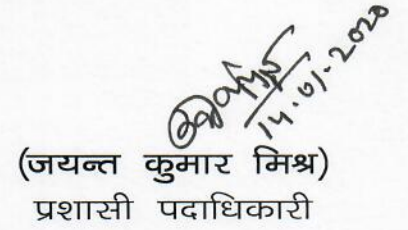 14.01.2020
(जयन्त कुमार मिश्र)
प्रशासी पदाधिकारी